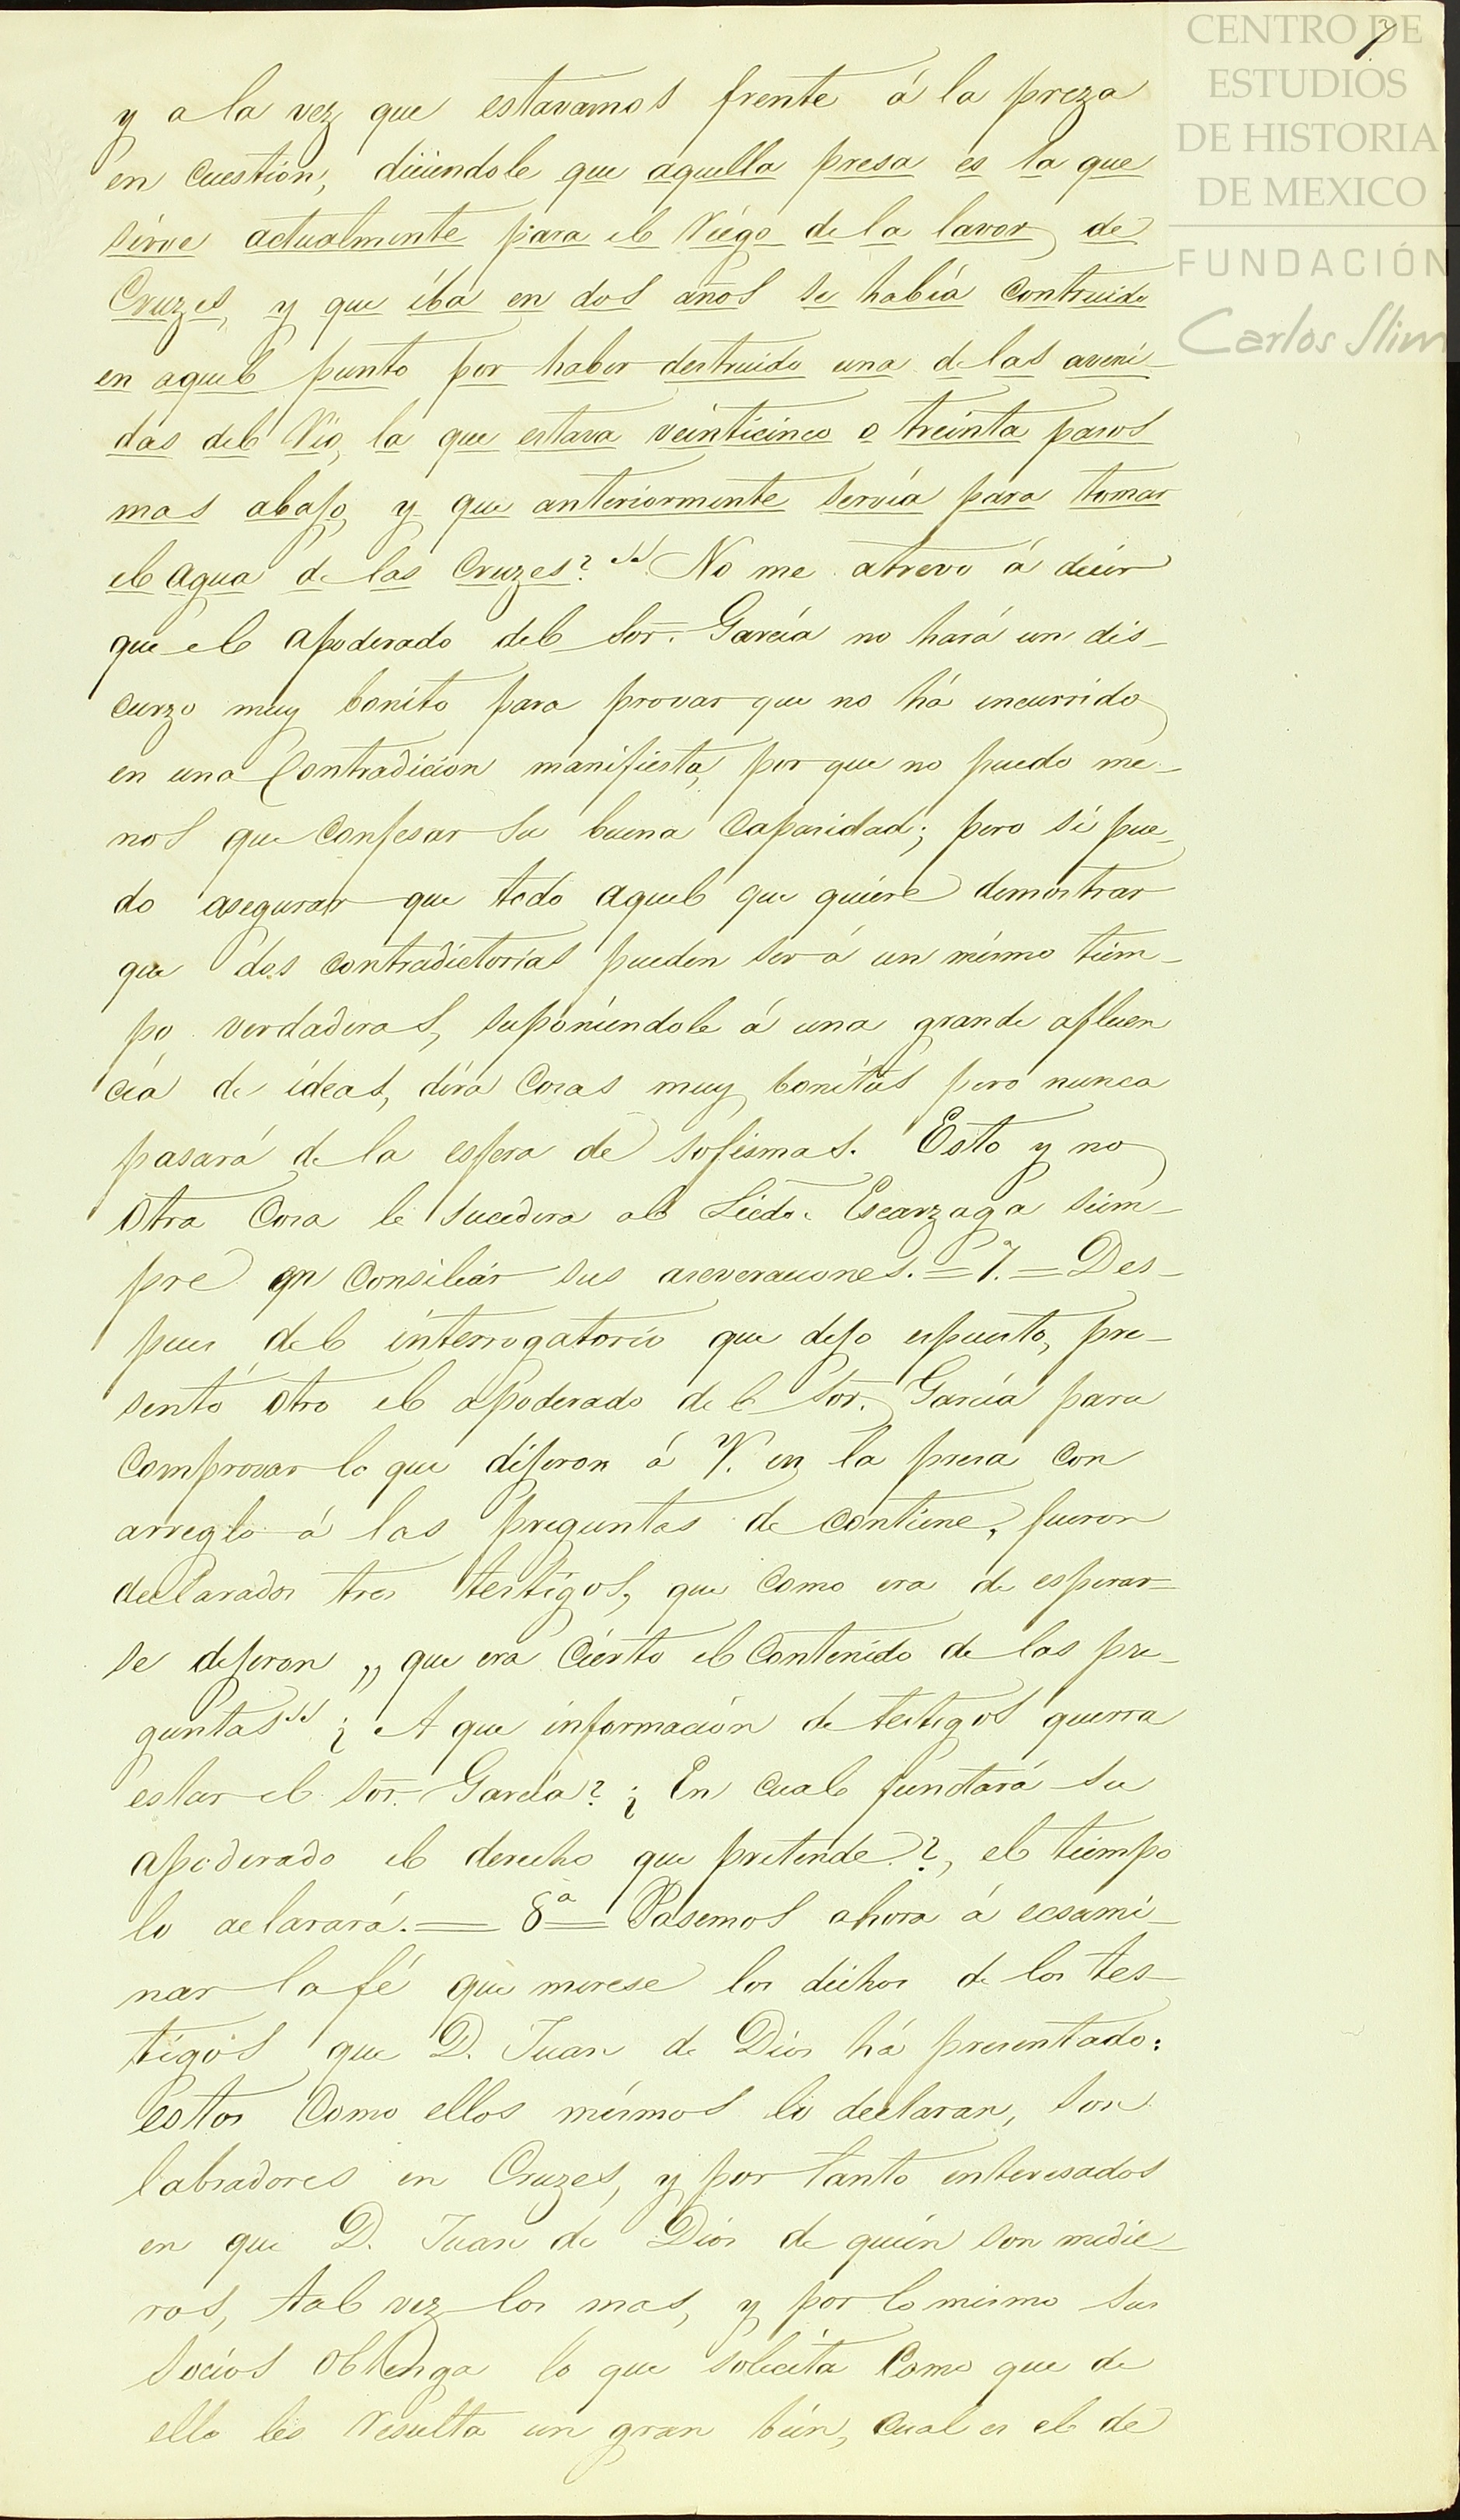 CENTRO DE
ESTUDIOS
DE HISTORIA
DE MEXICO
FUNDACIÓN
Carlos Slim
7
y a la vez que estavamos frente á la preza
en cuestión, diciendole que aquella presa es la que
sirve actualmente para el Riego de la lavor de
Cruzes, y que iba en dos años se había contruido
en aquel punto por haber destruido una de las aveni-
das del Rio, la que estava veinticinco o treinta pasos
mas abajo, y que anteriormente servía para tomar
el agua de las Cruzes?" No me atrevo á decir
que el apoderado del Sor. García no hará un dis-
curzo muy bonito para provar que no há incurrido
en una Contradicion manifiesta, por que no puedo me-
nos que confesar su buena Capasidad; pero si pue-
do asegurar que todo aquel que quiere demostrar
que dos contradictorias pueden ser á un mismo tiem-
po verdaderas, suponiendole á una grande afluen
cia de ideas, dira Cosas muy bonitas pero nunca
pasará de la esfera de sofismas. Esto y no
Otra Cosa le sucedera al Licdo. Escarzaga siem-
pre qn consiliár sus aseveraciones. = 7. = Des-
pues del interrogatorio que dejo espuesto, pre-
sentó otro el apoderado del Sor. García para
comprovar lo que dijeron á V. en la presa con
arreglo á las preguntas de contiene, fueron
declarados tres testigos, que como era de esperar-
se dijeron „ que era Cierto el Contenido de las pre-
guntas" ¿ A que información de testigos querra
estar el Sor. García? ¿ En cual fundará su
apoderado el derecho que pretende?, el tiempo
lo aclarará. = 8a = Pasemos ahora á ecsami-
nar la fé que merese los dichos de los tes-
tigos que D. Juan de Dios há presentado:
estos Como ellos mismos lo declaran, son
labradores en Cruzes, y por tanto interesados
en que D. Juan de Dios de quien son medie-
ros, tal vez los mas, y por lo mismo sus
socios obtenga lo que solicita Como que de
ello les resulta un gran bien, cual es el de